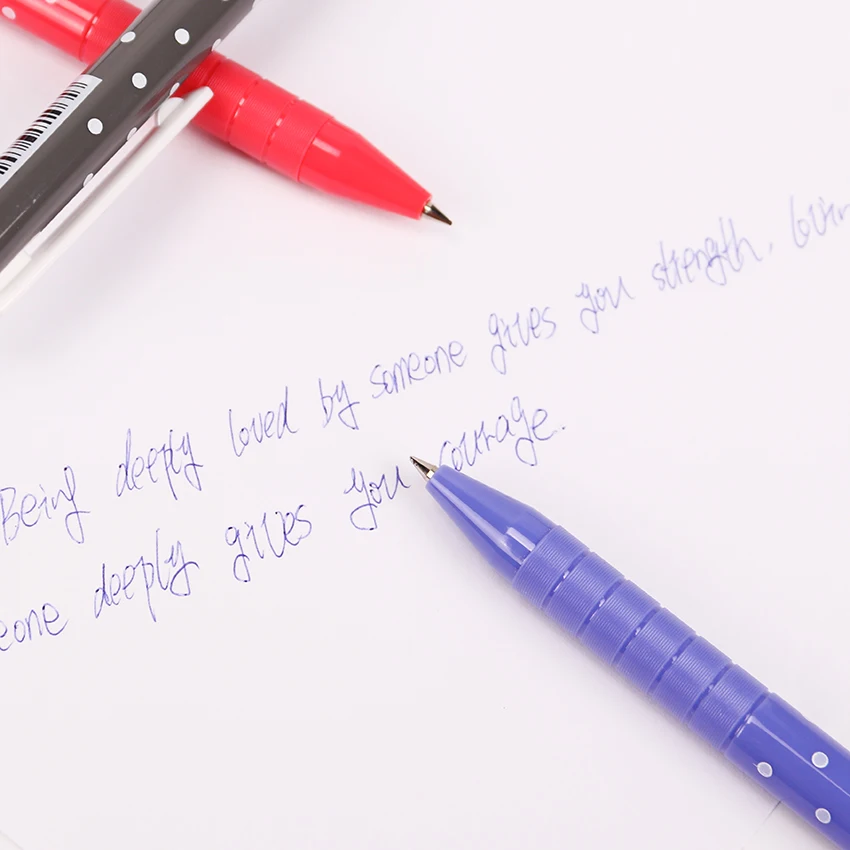 Being deeply loved by someone gives you strength,
deeply gives you courage.